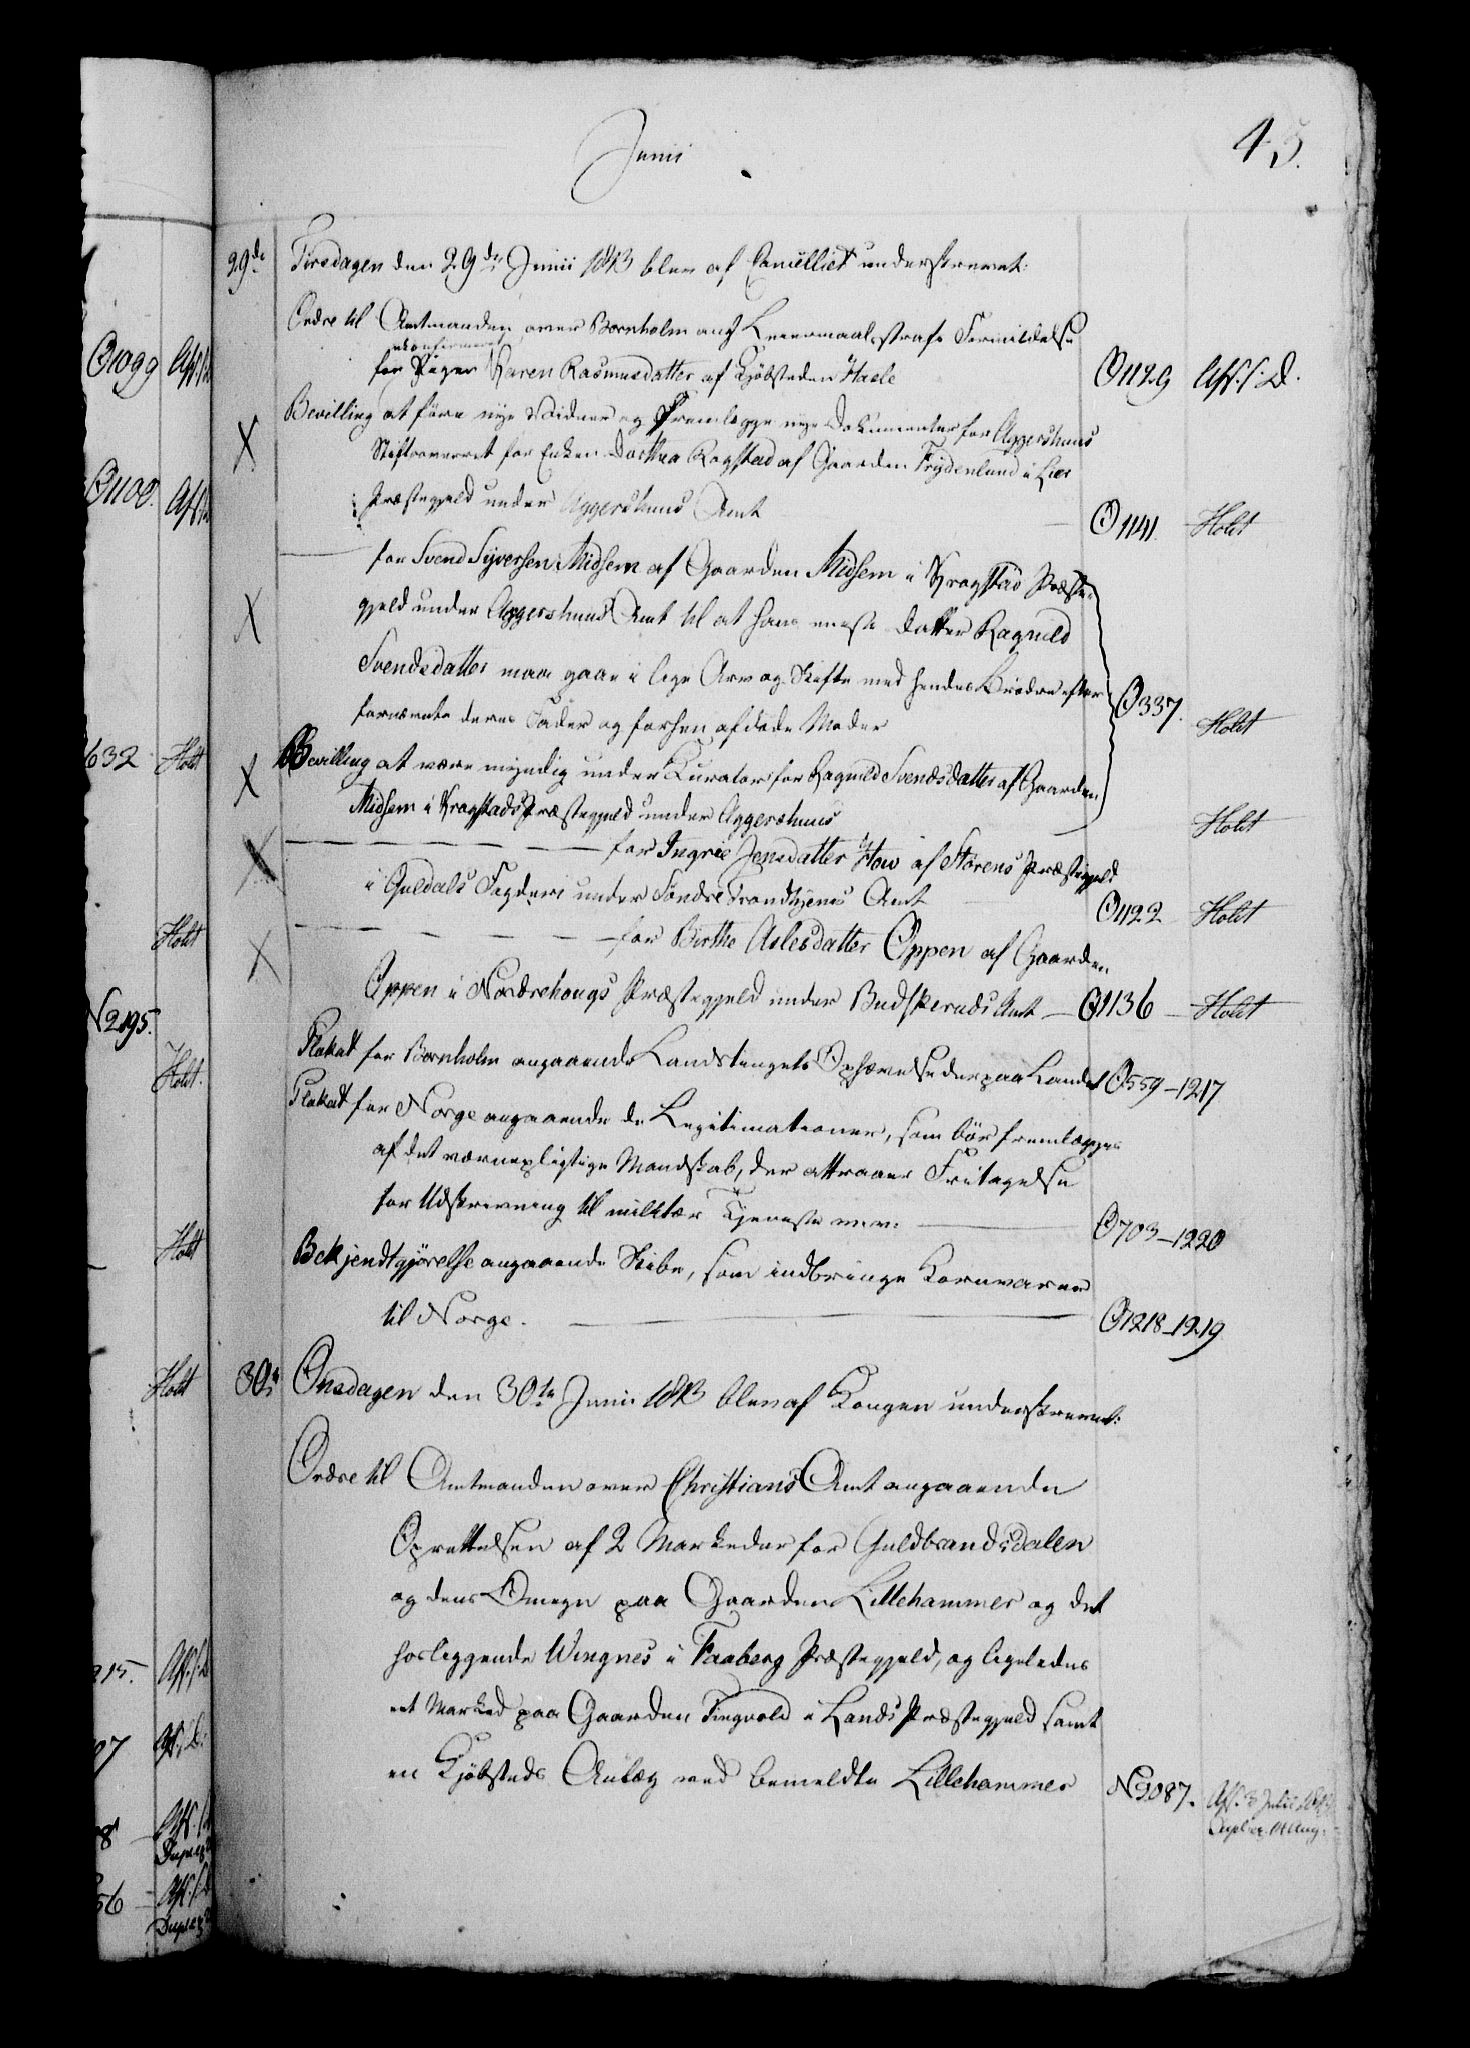 Junii
45.
29de Tirsdagen den 29de Junii 1813 blev af Cancelliet underskrevet:
Ordre til Amtmanden over Bornholm angl Leiermaalsstrafs Formildelse
ukonfirmeret
for Pigen Karen Rasmusdatter af Kjöbsteden Hasle O1129 Afs. s. D.
X Bevilling at före nye Vidner og fremlægge nye Dokumenter for Aggershuus
Stiftsoverret for Enken Dorthea Rogstad af Gaarden Frydenlund i Lier
Præstegjeld under Aggershuus Amt O1141. Holdt
X — for Svend Syversen Midsem af Gaarden Midsem i Kragstad Præste-
gjeld under Aggershuus Amt til at hans eneste Datter Ragnild
Svendsdatter maa gaae i lige Arv og Skifte med hendes Brödre efter
fornævnte deres Fader og forhen afdöde Moder O337. Holdt
X Bevilling at være myndig under Kurator for Ragnild Svendsdatter af Gaarden
Midsem i Kragstads Præstegjeld under Aggershuus Holdt
X — — — — — — for Ingrie Jensdatter How af Störens Præstegjeld
i Guldals Fogderi under Söndre Trondhjems Amt O1122 Holdt
X — — — — — — for Birthe Aslesdatter Oppen af Gaarden
Oppen i Nordrehougs Præstegjeld under Budskeruds Amt — O1136 — Holdt
Plakat for Bornholm angaaende Landstingets Ophævelse der paa Landet O559–1217
Plakat for Norge angaaende de Legitimationer, som bör fremlægges
af det værnepligtige Mandskab, der attraaer Fritagelse
for Udskrivning til militær Tjeneste m.v: O703–1220
Bekjendtgjörelse angaaende Skibe, som indbringe Kornvarer
til Norge. O1218–1219
30te Onsdagen den 30te Junii 1813 blev af Kongen underskrevet:
Ordre til Amtmanden over Christians Amt angaaende
Oprettelsen af 2 Markeder for Guldbrandsdalen
og dens Omegn paa Gaarden Lillehammer og det
hosliggende Wingnes i Faaberg Præstegjeld, og ligeledes
et Marked paa Gaarden Tingvold i Lands Præstegjeld samt
en Kjöbsteds Anlæg ved bemeldte Lillehammer N2087. Afs. 3 Julii
O1099 Afs.
O1100. Afs.
632 Holdt
Holdt
N2195.
Holdt.
Holdt
Holdt
215. Afs. s. D
07 Afs. s. D.
8 Afs.
56 Afs.